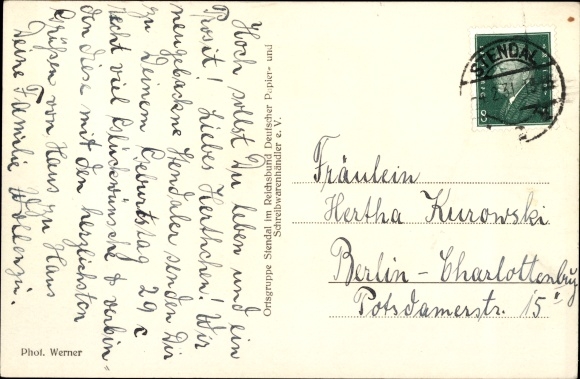 Hoch sollst Du leben und ein
Prosit! Liebes Herthchen! Wir
neugebackne Stendaler senden Dir
zu Deinem Geburtstag 29
recht viel Glückwünsche & verbin=
den diese mit den herzlichsten
Grüßen von Haus zu Haus
Deine Familie
Ortsgruppe Stendal im Reichsbund Deutscher Papier- und
Schreibwarenhändler e. V.
STENDAL
Fräulein
Hertha Kurowski
Berlin-Charlottenburg
Potsdamerstr. 15
Phot. Werner